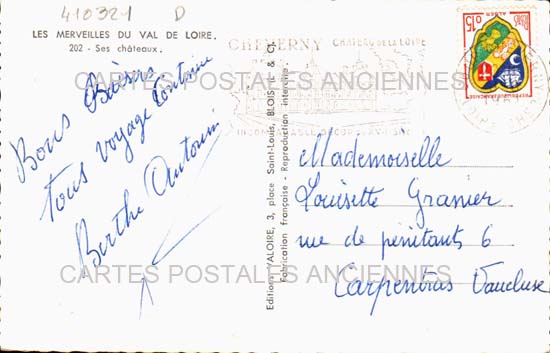 410321 D
LES MERVEILLES DU VAL DE LOIRE.
202 - Ses châteaux.
Bons Baisers
tous voyage
Berthe Antonin
Editions VALOIRE, 3, place Saint-Louis, BLOIS (L. & C.)
Fabrication française - Reproduction interdite.
CHEVERNY CHATEAU DE LA LOIRE
0,15
ALGER
Mademoiselle
Louisette Granier
rue de pénitants 6
Carpentras Vaucluse
CARTES POSTALES ANCIENNES
CARTES POSTALES ANCIENNES